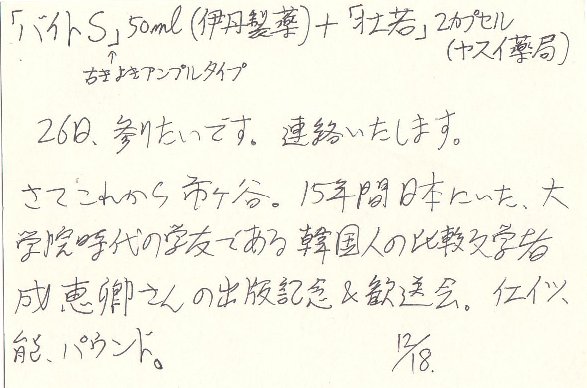 「バイトS」50ml(伊丹製薬)+「壮若」2カプセル
(ヤスイ薬局)
↑
古きよきアンプルタイプ
26日、参りたいです。連絡いたします。
さてこれから市ヶ谷。15年間日本にいた、大
学院時代の学友である韓国人の比較文学者
成恵卿さんの出版記念&歓送会。イエイツ、
能、パウンド。
12/18.